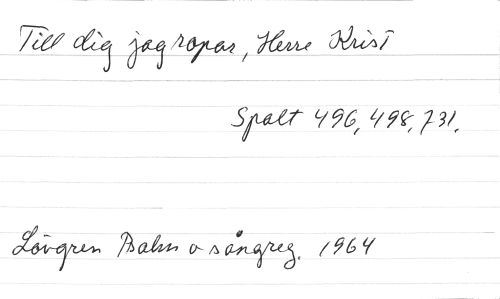 Till dig jag ropar, Herre Krist
Spalt 496, 498, 731.
Lövgren Psalm o sångreg. 1964